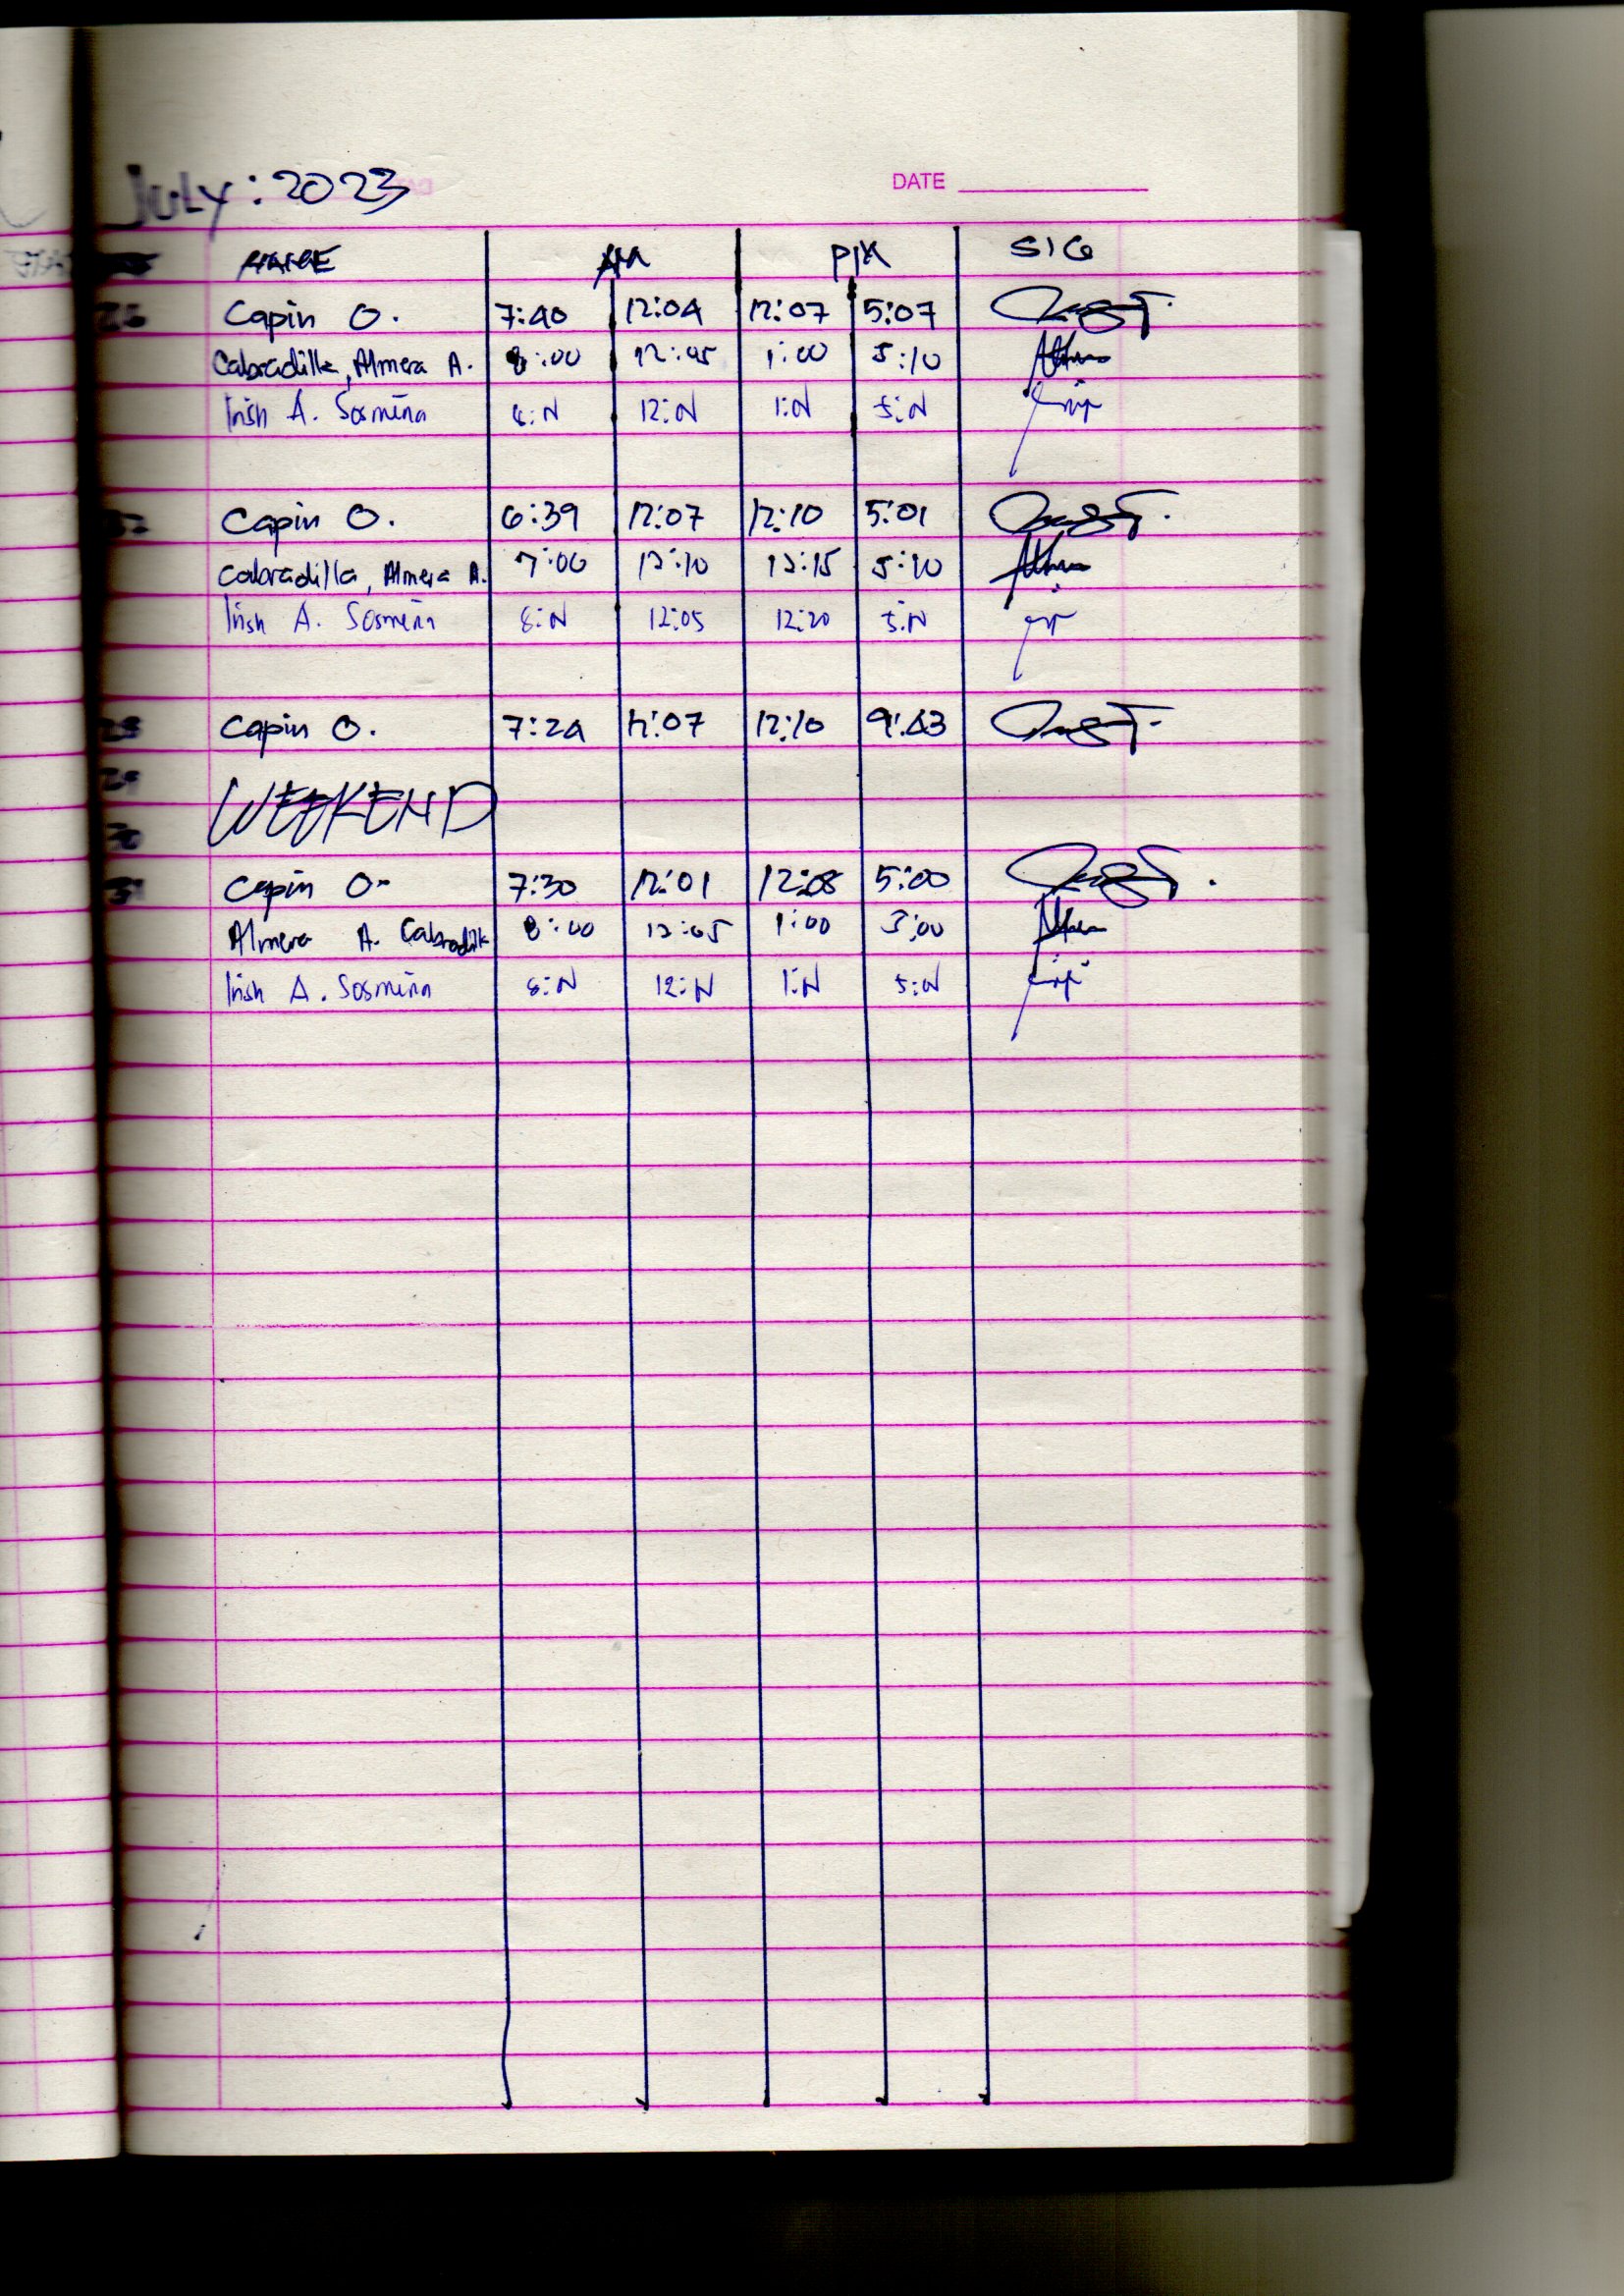 July : 2023
DATE
NAME AM PM SIG
26 Capin O. 7:40 12:04 12:07 5:07
Cabradilla, Almera A. 8:00 12:05 1:00 5:10
Irish A. Sosmeña 8:N 12:N 1:N 5:N
27 Capin O. 6:39 12:07 12:10 5:01
Cabradilla, Almera A. 7:00 12:10 12:15 5:10
Irish A. Sosmeña 8:N 12:05 12:20 5:N
28 Capin O. 7:24 12:07 12:10 9:43
29
WEEKEND
30
31 Capin O. 7:30 12:01 12:08 5:00
Almera A. Cabradilla 8:00 12:05 1:00 5:00
Irish A. Sosmeña 8:N 12:N 1:N 5:N